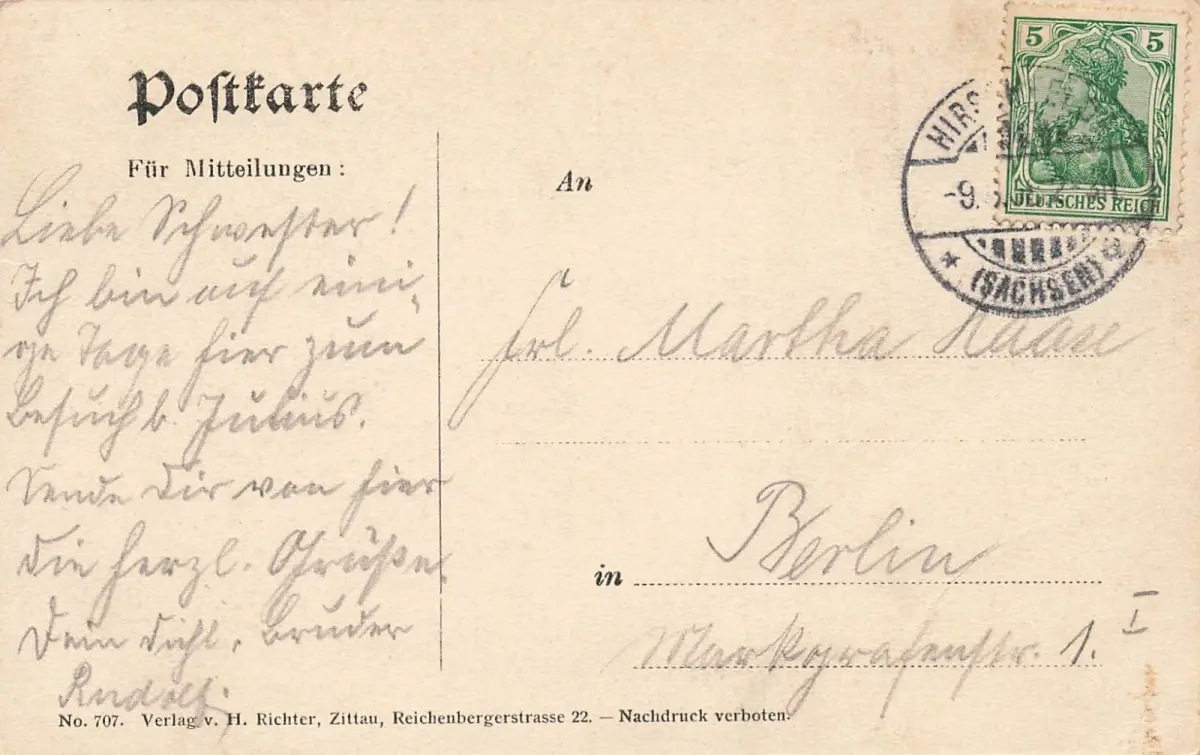 Postkarte
Für Mitteilungen:
Liebe Schwester!
Ich bin auf eini-
ge Tage hier zum
Besuch b. Julius.
Sende Dir von hier
die herzl. Grüße.
Dein Bruder
Rudolf.
An
Frl. Martha Haase
in Berlin
Markgrafenstr. 1. I
5 5
DEUTSCHES REICH
-9.
(SACHSEN)
No. 707. Verlag v. H. Richter, Zittau, Reichenbergerstrasse 22. — Nachdruck verboten.